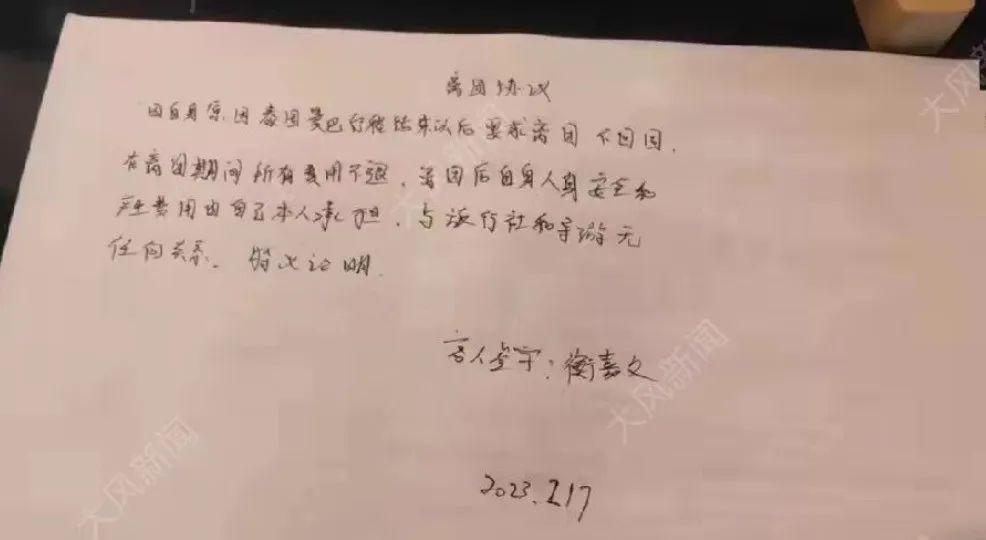 离团协议
因自身原因泰国曼巴行程结束以后要求离团 不回国.
在离团期间所有费用不退、离团后自身人身安全和
产生费用由自己本人承担、与旅行社和导游无
任何关系. 特此证明.
客人签字: 衡嘉文
2023.2.17
大风新闻
大风新闻
大风新闻
大风新闻